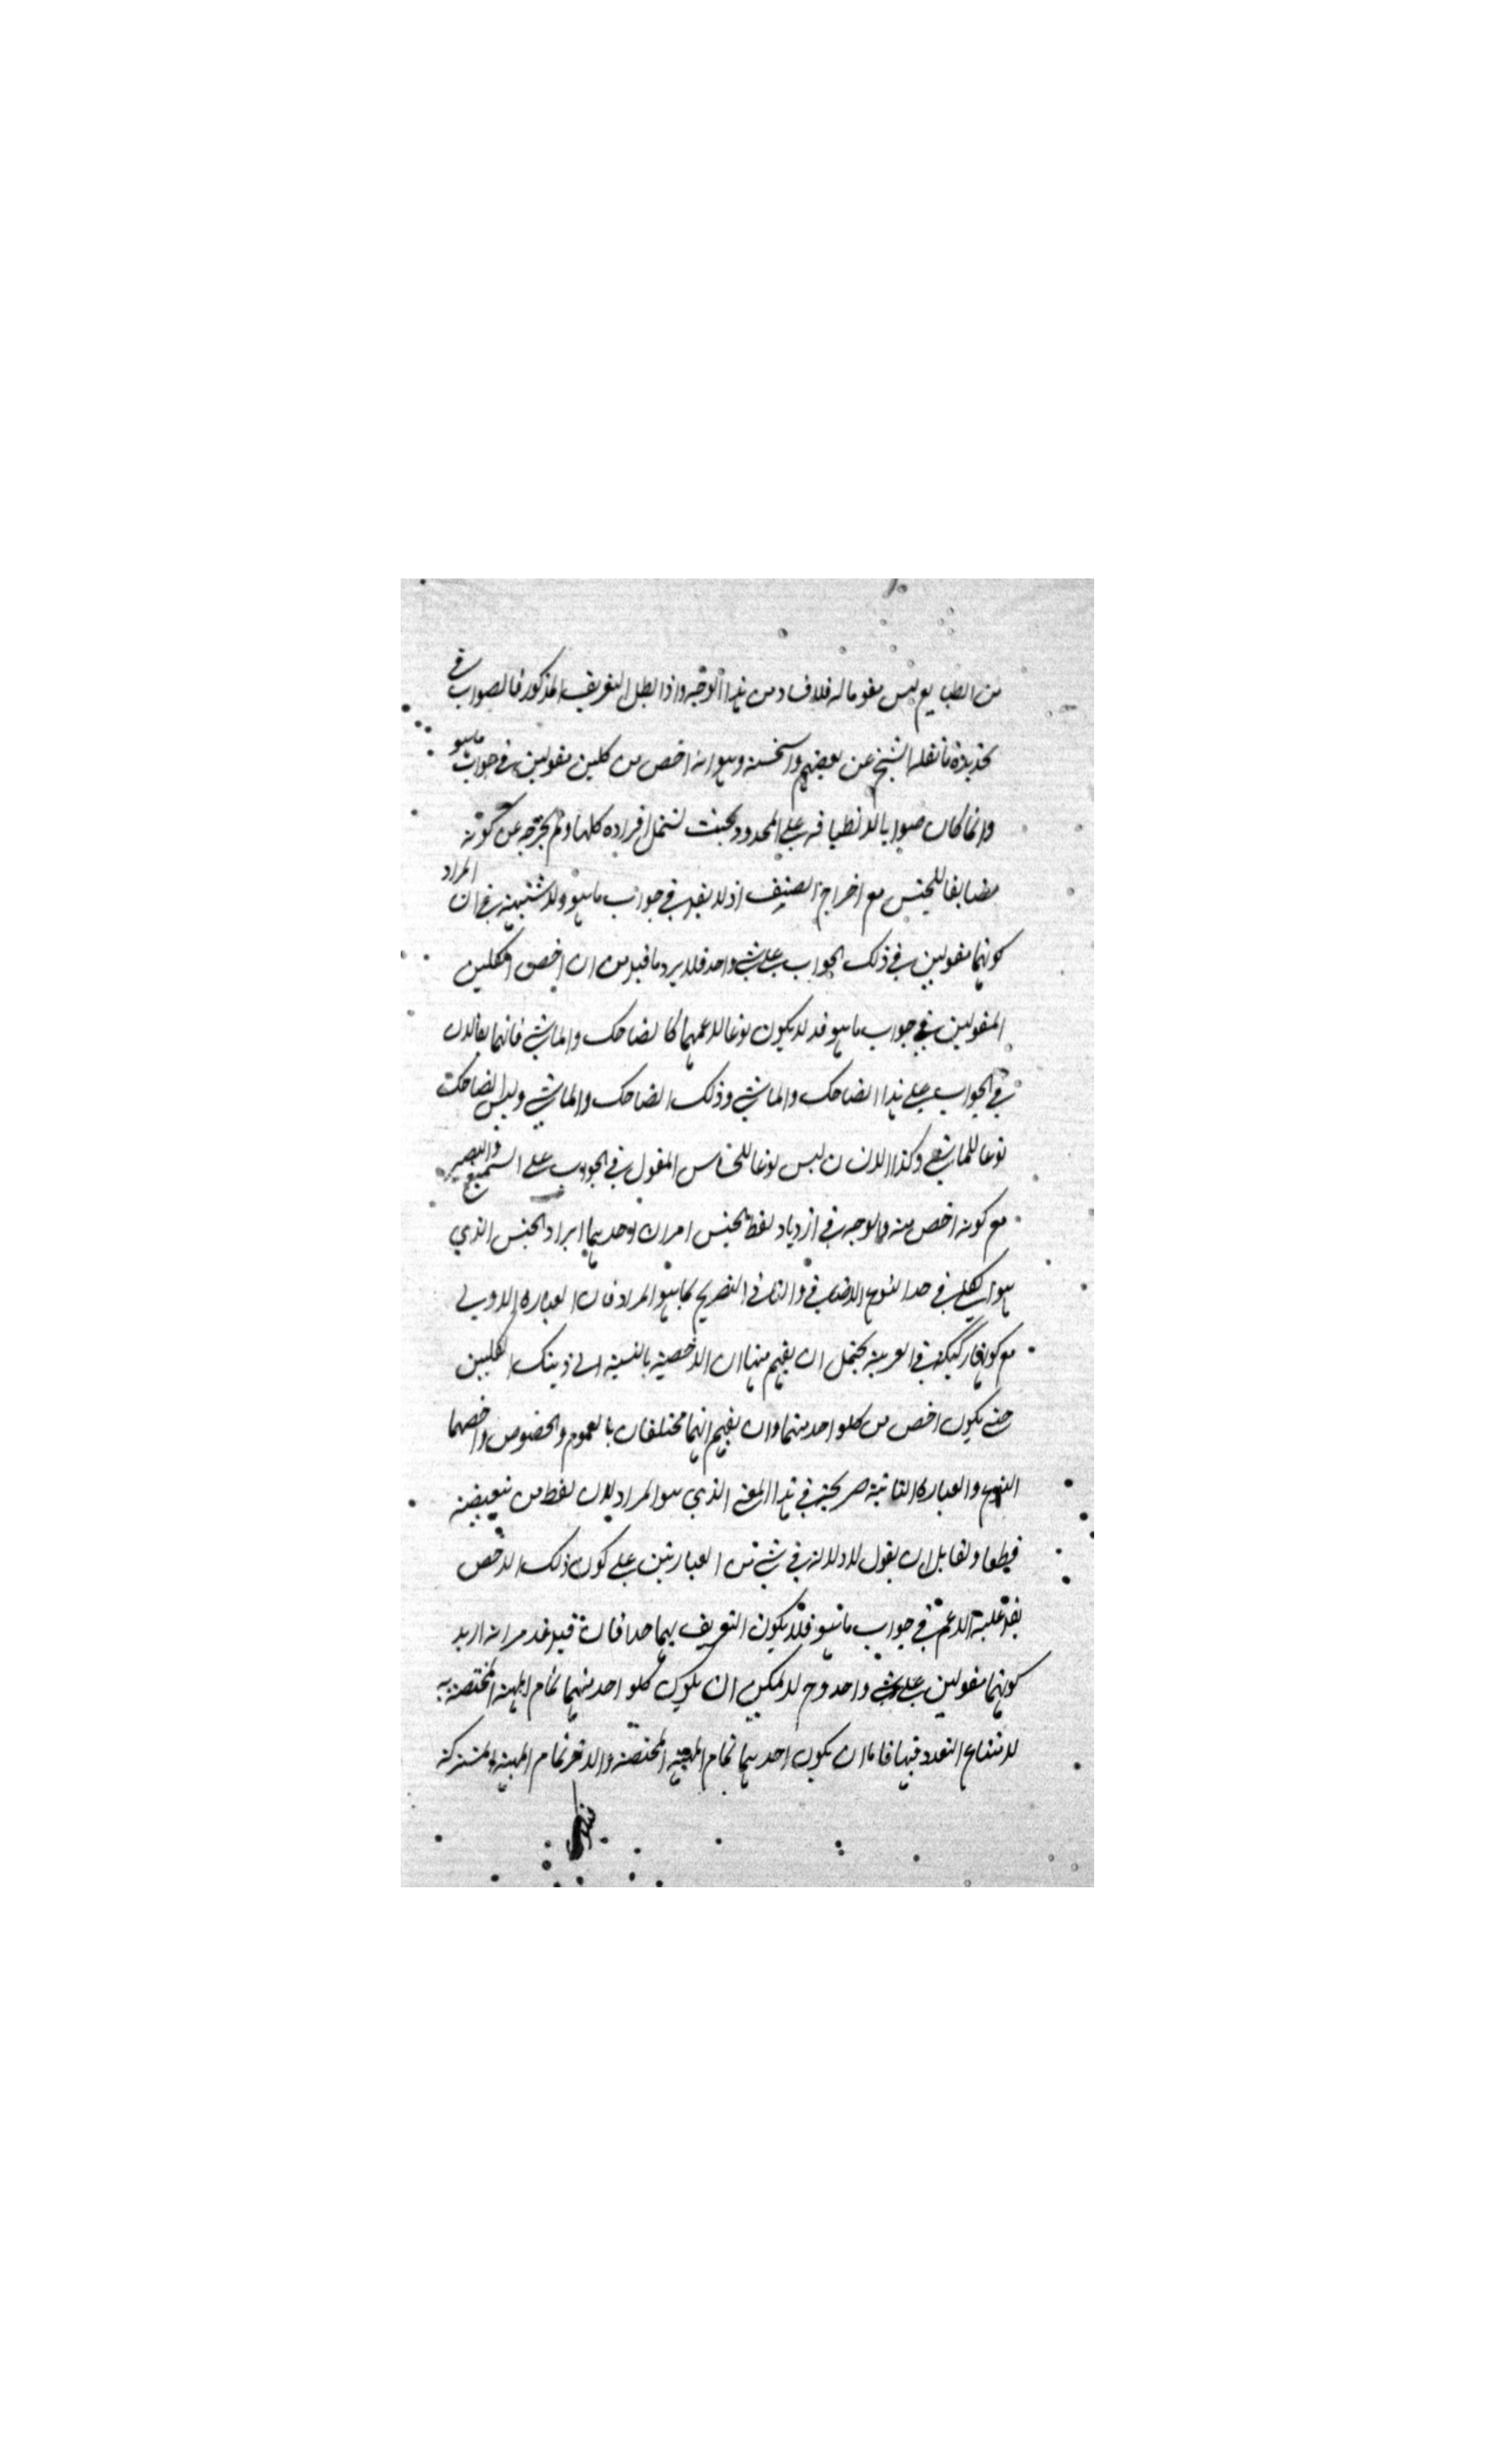 من الطبايع ليس مقوما له فلا فساد من هذا الوجه واذا بطل التعريف المذكور فالصواب في
تحديده ما نقله الشيخ عن بعضهم واستحسنه وهو انه اخص من كليين مقولين في جواب ماهو
وانما كان صوابا لانطباقه على المحدود بحيث يشمل افراده كلها ولم يخرجه عن كونه
مضايفا للجنس مع اخراج الصنف اذ لا يقع في جواب ماهو ولا شبهة في ان المراد
كونهما مقولين في ذلك الجواب على شي واحد فلا يرد ما قيل من ان اخص الكليين
المقولين في جواب ماهو قد لا يكون نوعا لاعمهما كالضاحك والماشي فانهما يقالان
في الجواب على هذا الضاحك والماشي وذلك الضاحك والماشي وليس الضاحك
نوعا للماشي وكذا الانسان ليس نوعا للحساس المقول في الجواب على السميع والبصير
مع كونه اخص منه والوجه في ازدياد لفظ الجنس امران احدهما ايراد الجنس الذي
هو الكلي في حد النوع الاضافي والثاني التصريح بما هو المراد فان العبارة الاولى
مع كونها ركيكة في العربية يحتمل ان يفهم منها ان الاخصية بالنسبة الى ذينك الكليين
حتى يكون اخص من كل واحد منهما وان يفهم انهما مختلفان بالعموم والخصوص واخصهما
النوع والعبارة الثانية صريحة في هذا المعنى الذي هو المراد لان لفظ من تبعيضية
قطعا ولقايل ان يقول لا دلالة في شي من العبارتين على كون ذلك الاخص
يقع عليه الاعم في جواب ماهو فلا يكون التعريف بهما حدا فان قيل قد مر انه اريد
كونهما مقولين على شي واحد وح لا يمكن ان يكون كل واحد منهما تمام المهية المختصة به
لامتناع التعدد فيها فاما ان يكون احدهما تمام المهية المختصة والاخر تمام المهية المشتركة